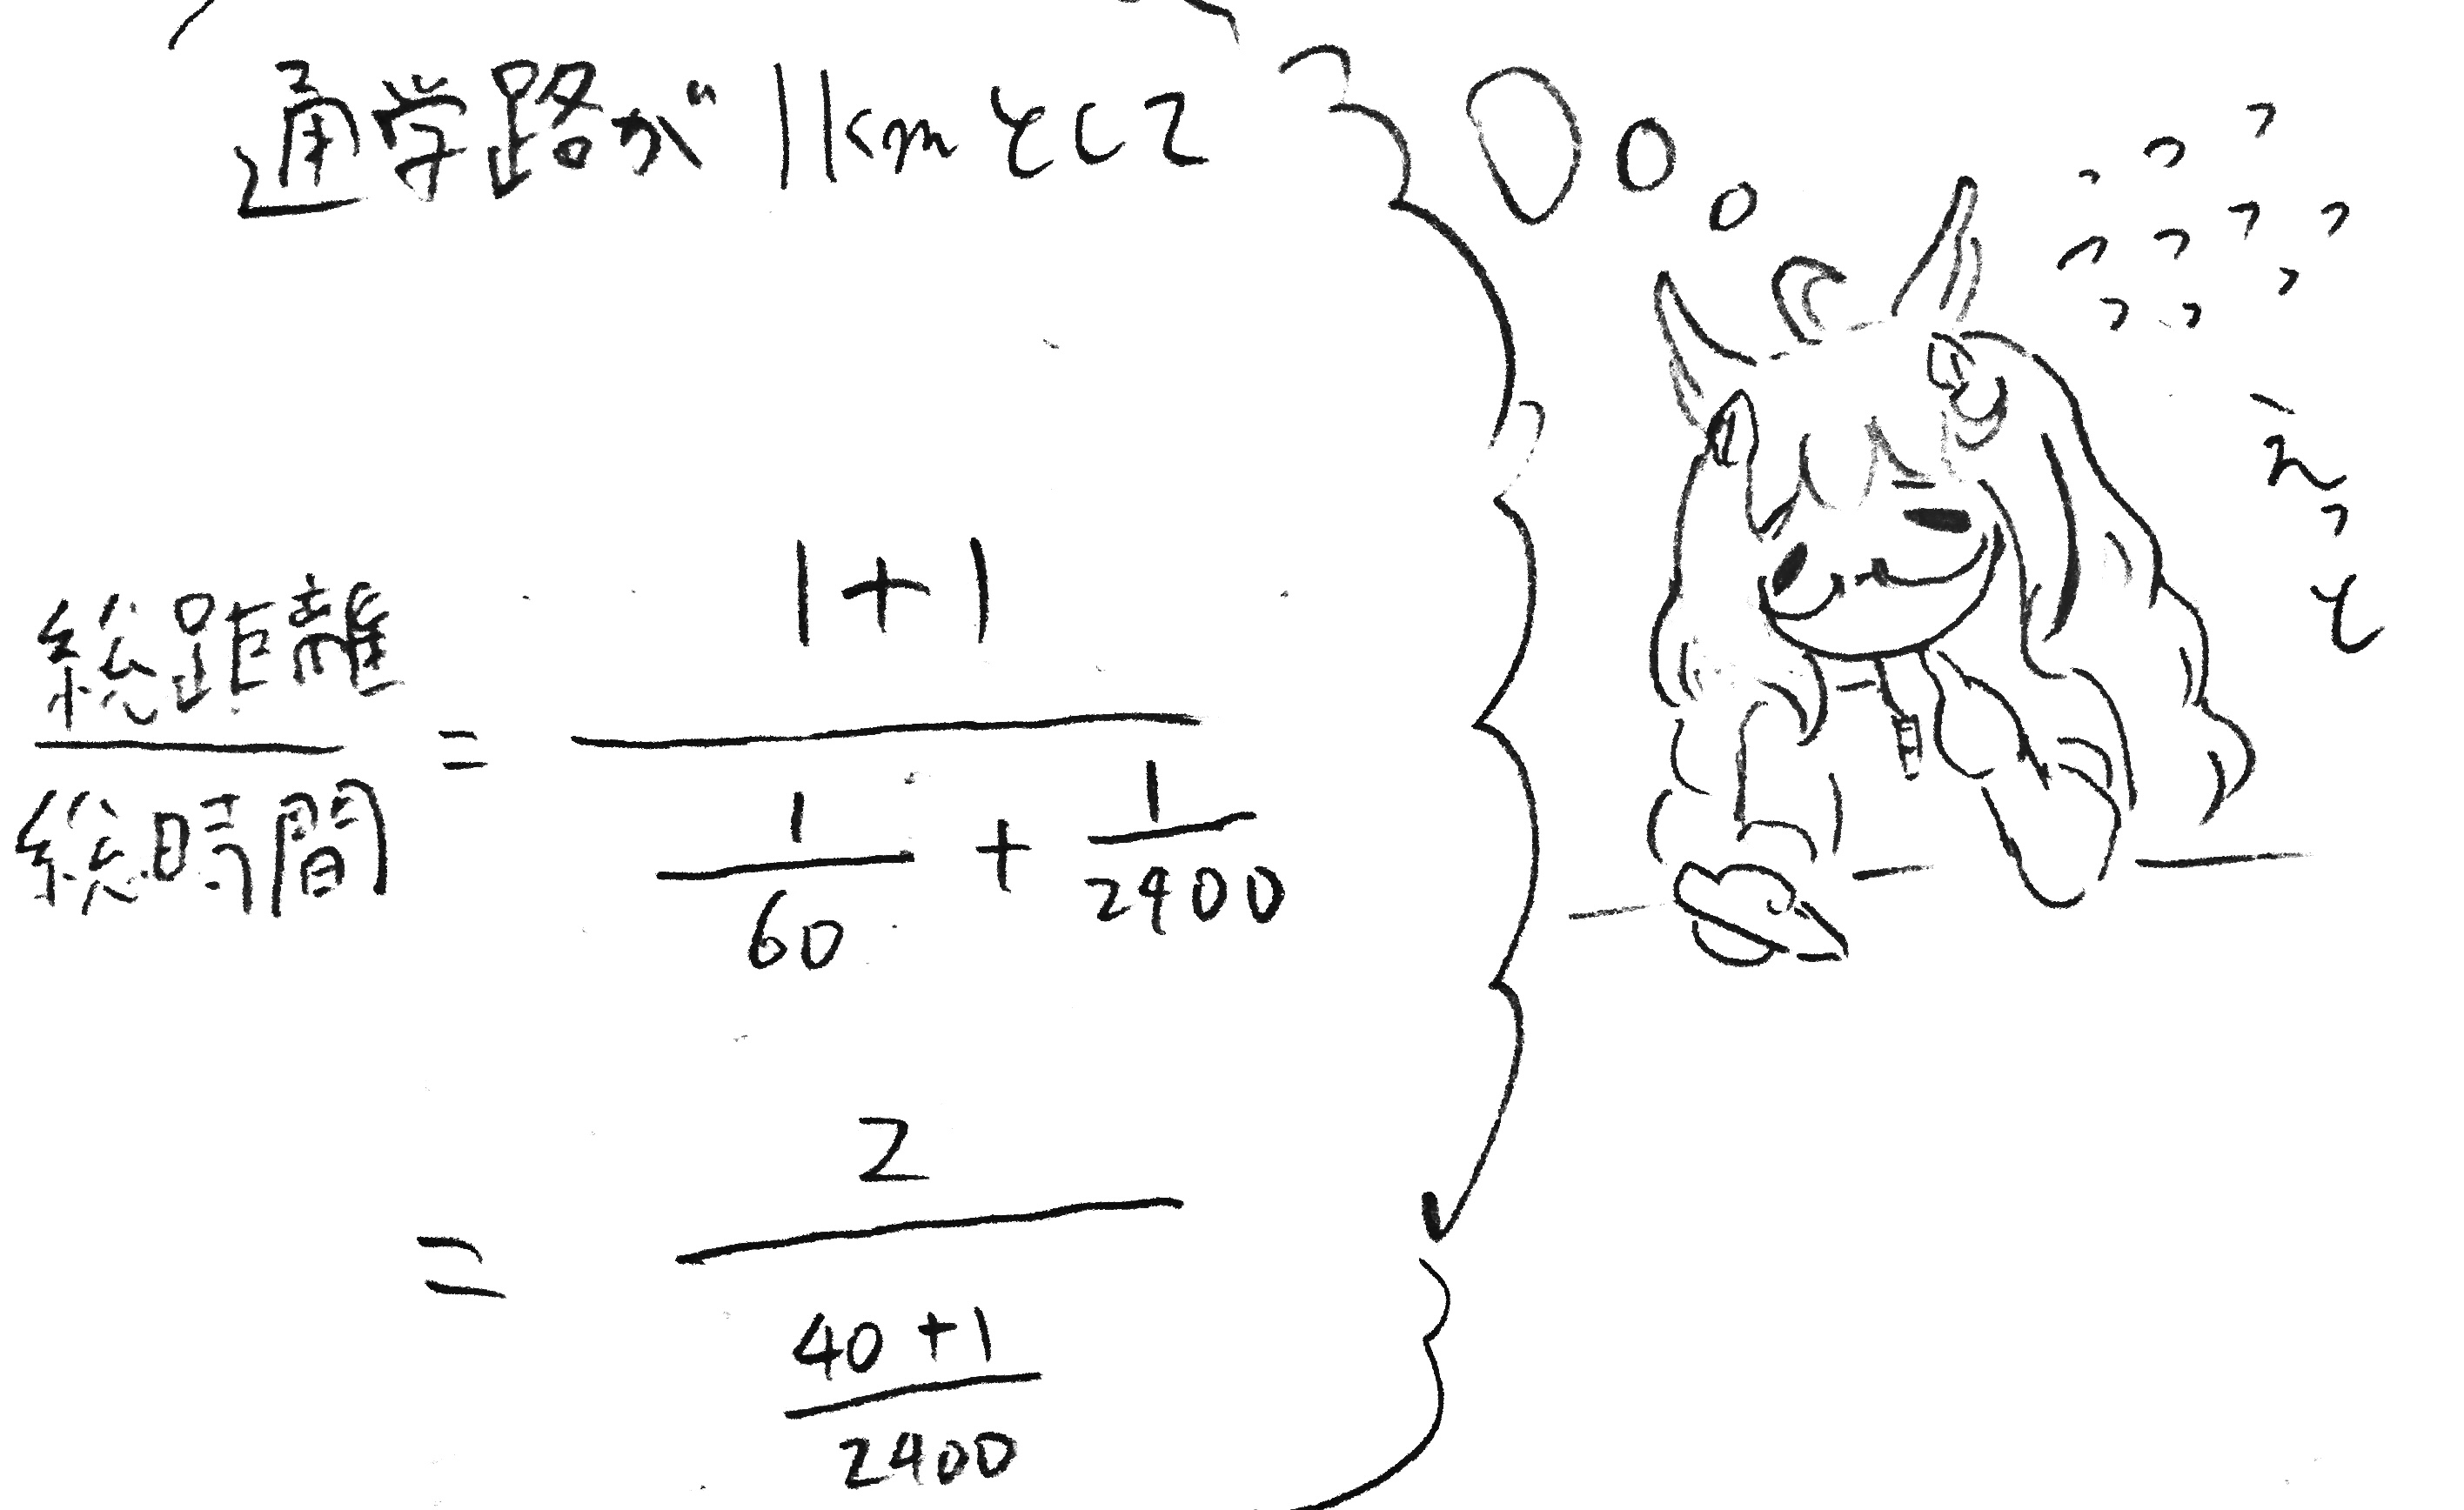 通学路が1kmとして
総距離/総時間 = (1+1)/(1/60 + 1/2400)
= 2/((40+1)/2400)
えっと